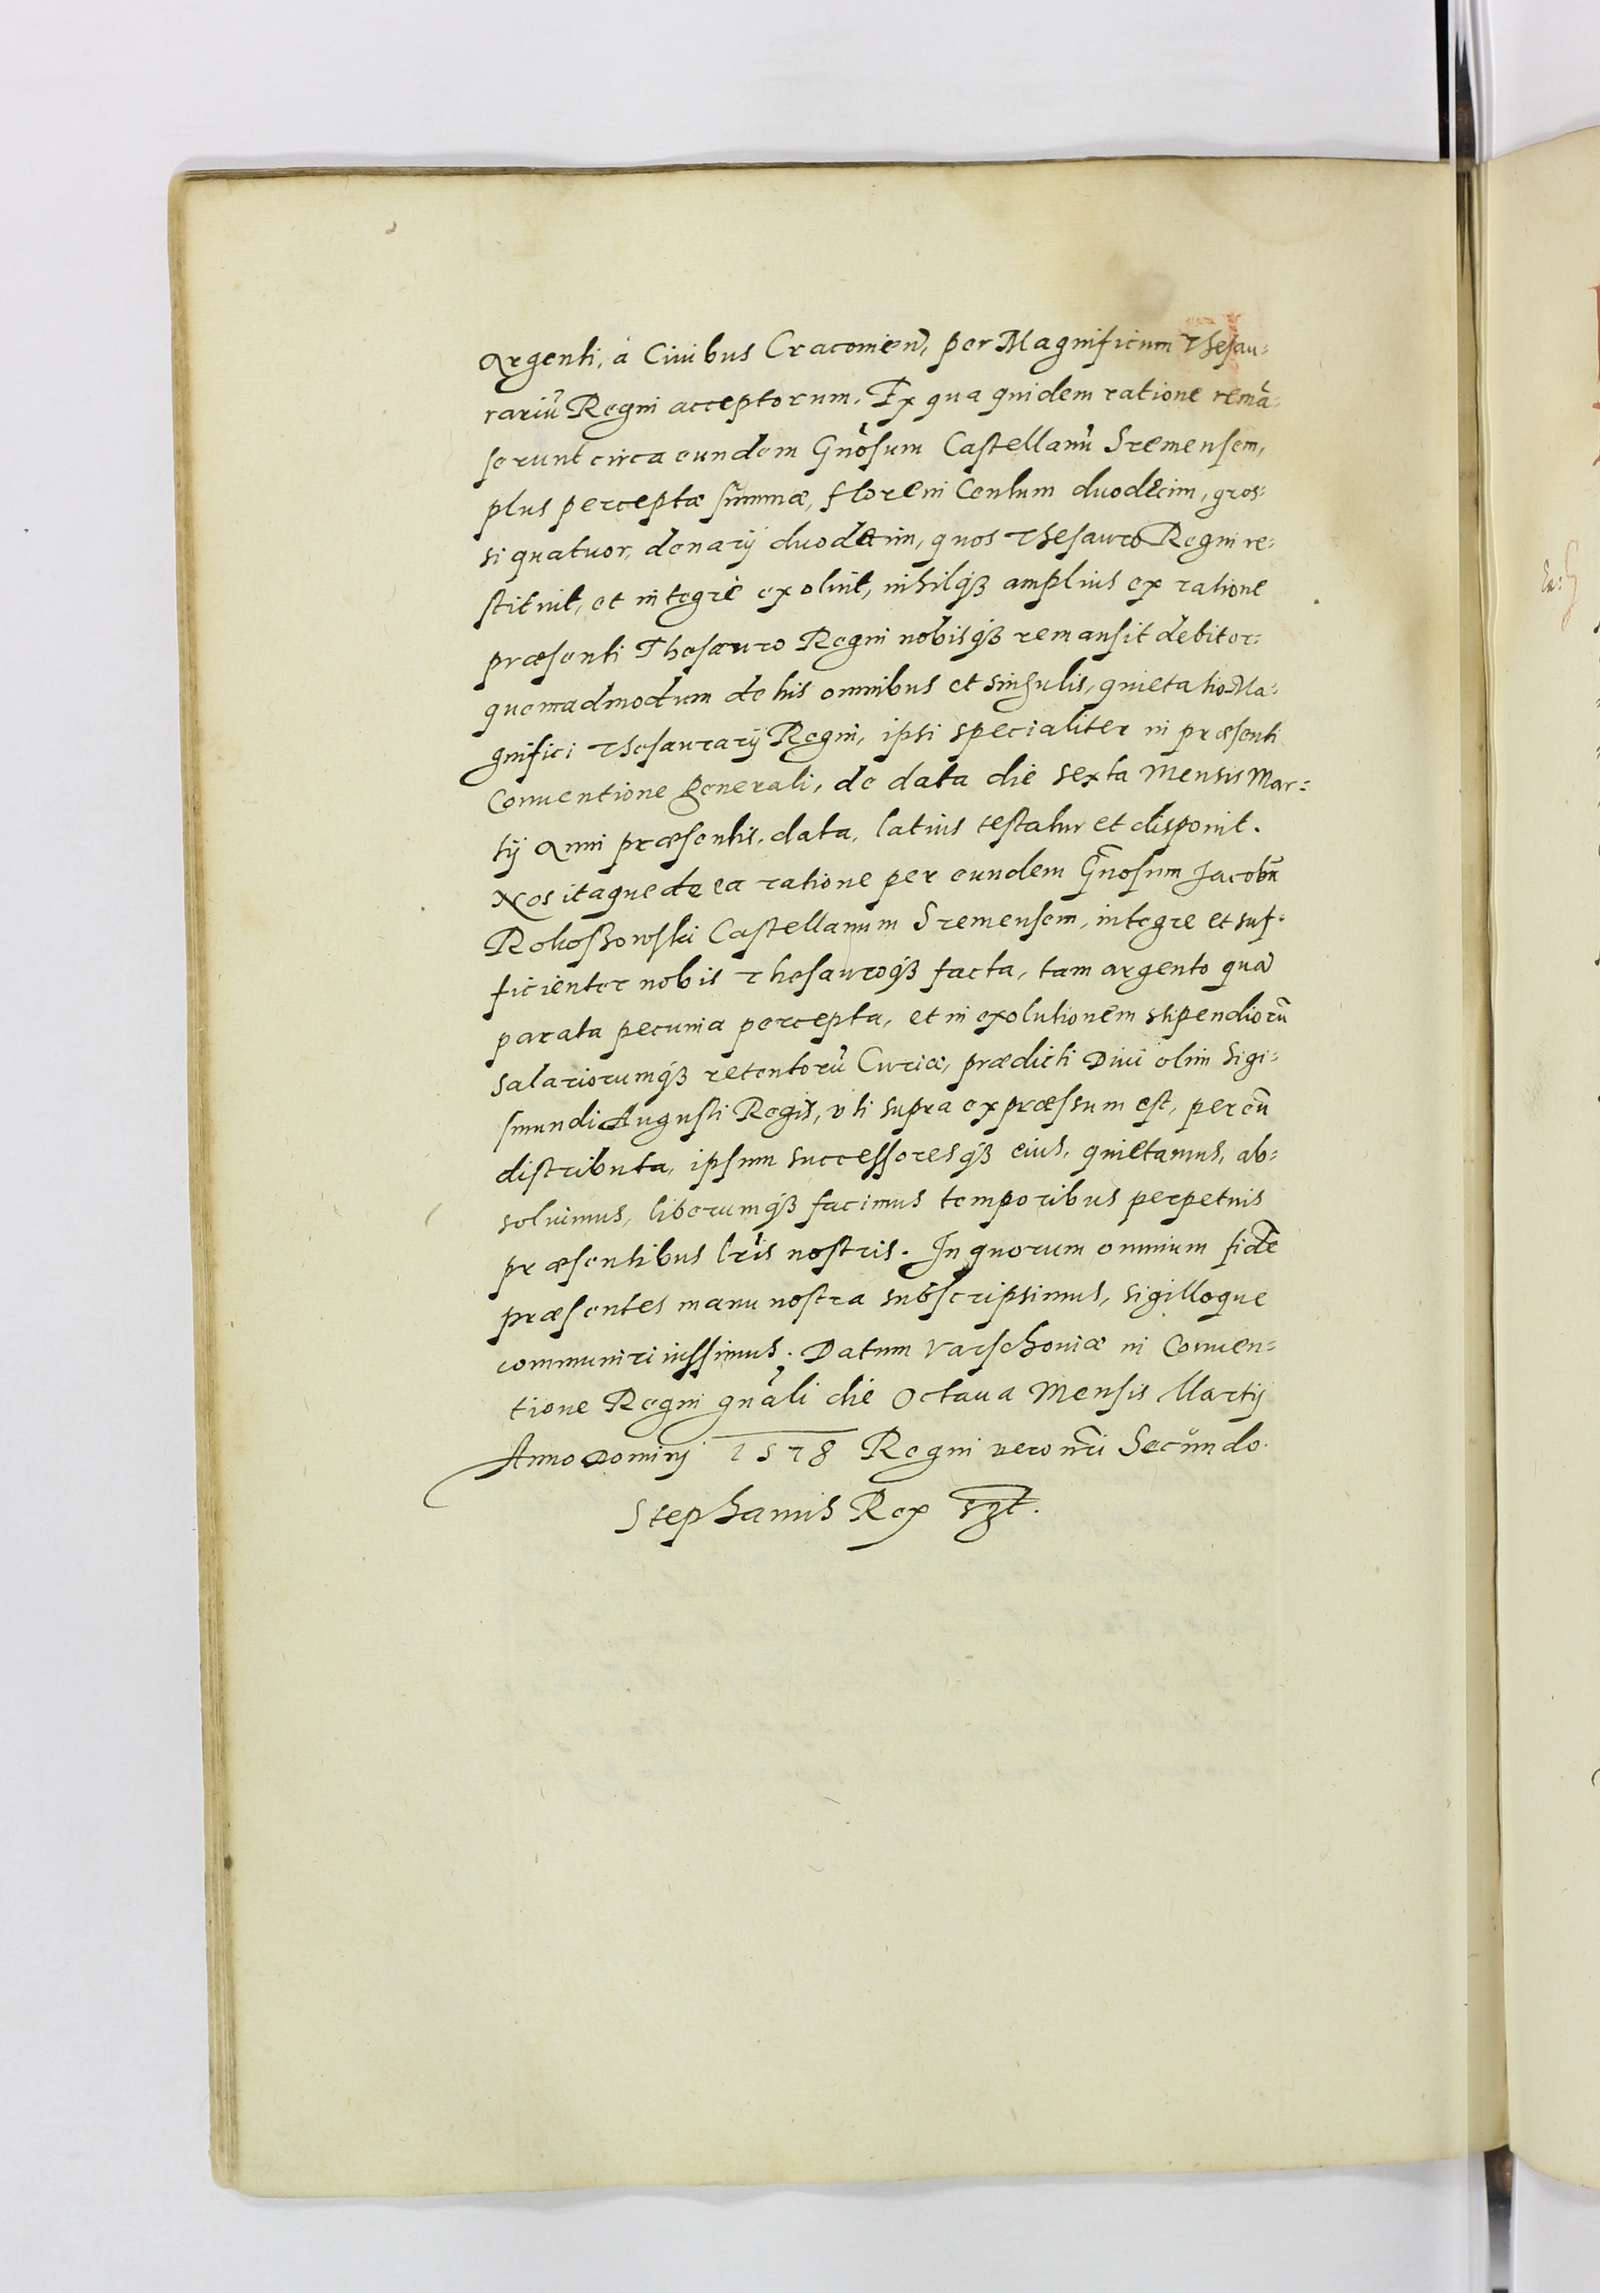 Argenti, à Ciuibus Cracouien̄, per Magnificum Thesau:
rariū Regni acceptorum. Ex qua quidem ratione remā:
serunt circa eundem Gnōsum Castellanū Sremensem,
plus perceptæ summæ, floreni Centum duodecim, gros:
si quatuor, denarij duodecim, quos Thesauro Regni re:
stituit, et integrè exoluit, nihilqȝ amplius ex ratione
præsenti Thesauro Regni nobisqȝ remansit debitor:
quemadmodum de his omnibus et singulis, quietatio Ma:
gnifici Thesaurarij Regni, ipsi specialiter in præsenti
Conuentione generali, de data die sexta Mensis Mar:
tij Anni præsentis, data, latius testatur et disponit.
Nos itaque de ea ratione per eundem Gnōsum Jacobū
Rokoßowski Castellanum Sremensem, integre et suf:
ficienter nobis Thesauroqȝ facta, tam argento quā
parata pecunia percepta, et in exolutionem stipendiorū
salariorumqȝ retentorū Curiæ, prædicti Diui olim Sigi:
smundi Augusti Regis, vti supra expræssum est, per eū
distributa, ipsum successoresqȝ eius, quietamus, ab:
soluimus, liberumqȝ facimus temporibus perpetuis
præsentibus lr̄is nostris. In quorum omnium fidē
præsentes manu nostra subscripsimus, sigilloque
communiri iussimus. Datum Varschouiæ in Conuen:
tione Regni gnāli die Octaua Mensis Martij
Anno Domini 1578 Regni vero nr̄i Secundo.
Stephanus Rex sz̄t.